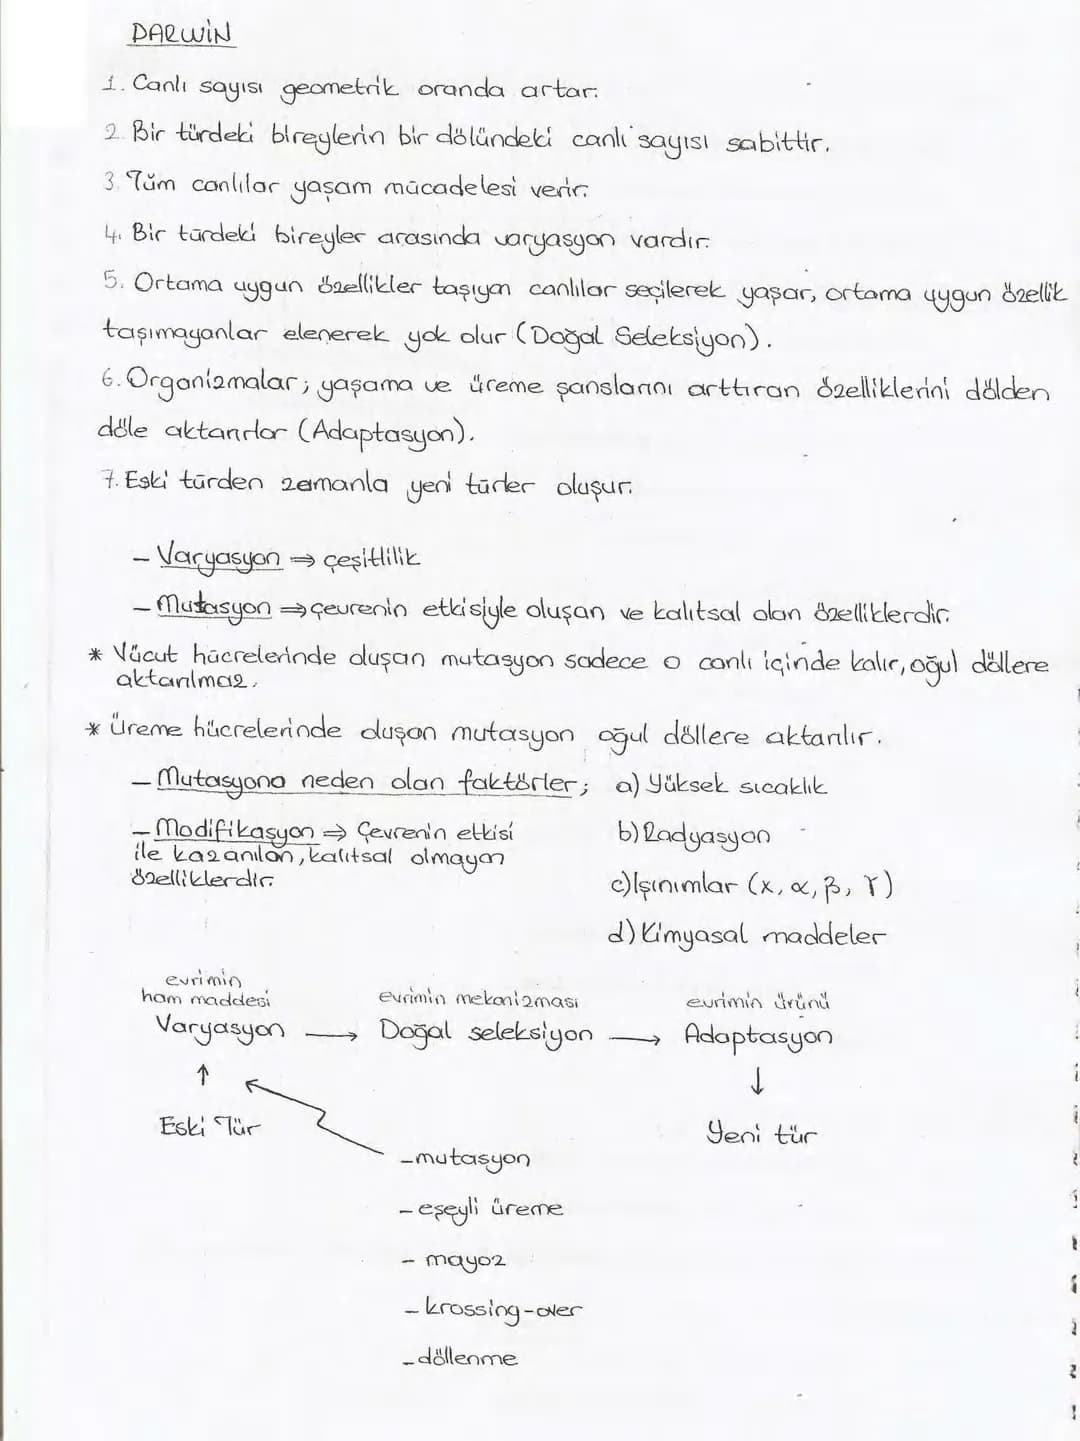 DARWİN
1. Canlı sayısı geometrik oranda artar.
2. Bir türdeki bireylerin bir dölündeki canlı sayısı sabittir.
3. Tüm canlılar yaşam mücadelesi verir.
4. Bir türdeki bireyler arasında varyasyon vardır.
5. Ortama uygun özellikler taşıyan canlılar seçilerek yaşar, ortama uygun özellik
taşımayanlar elenerek yok olur (Doğal Seleksiyon).
6. Organizmalar; yaşama ve üreme şanslarını arttıran özelliklerini dölden
döle aktarırlar (Adaptasyon).
7. Eski türden zamanla yeni türler oluşur.
- Varyasyon ⇒ çeşitlilik
- Mutasyon ⇒ çevrenin etkisiyle oluşan ve kalıtsal olan özelliklerdir.
* Vücut hücrelerinde oluşan mutasyon sadece o canlı içinde kalır, oğul döllere
aktarılmaz.
* Üreme hücrelerinde oluşan mutasyon oğul döllere aktarılır.
- Mutasyona neden olan faktörler; a) Yüksek sıcaklık
- Modifikasyon ⇒ Çevrenin etkisi
ile kazanılan, kalıtsal olmayan
özelliklerdir.
b) Radyasyon
c) Işınımlar (x, α, β, γ)
d) Kimyasal maddeler
evrimin
ham maddesi
evrimin mekanizması
evrimin ürünü
Varyasyon → Doğal seleksiyon → Adaptasyon
↑ ↓
Eski Tür
Yeni tür
- mutasyon
- eşeyli üreme
- mayoz
- krossing-over
- döllenme